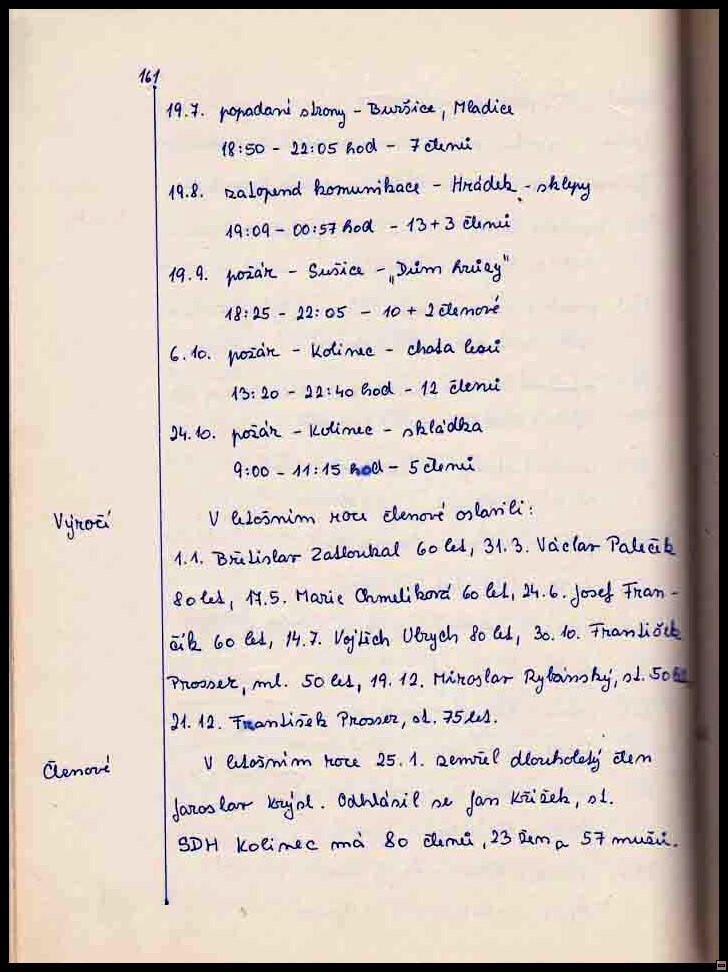 161
19.7. popadané stromy - Buršice, Mladice
18:50 - 22:05 hod - 7 členů
19.8. zatopená komunikace - Hrádek - sklepy
19:09 - 00:57 hod - 13 + 3 členů
19.9. požár - Sušice - „Dům hrůzy"
18:25 - 22:05 - 10 + 2 členové
6.10. požár - Kolinec - chata
13:20 - 22:40 hod - 12 členů
24.10. požár - Kolinec - skládka
9:00 - 11:15 hod - 5 členů
Výročí
V letošním roce členové oslavili:
1.1. Břetislav Zatloukal 60 let, 31.3. Václav Paleček
80 let, 17.5. Marie Chmelíková 60 let, 24.6. Josef Fran-
čík 60 let, 14.7. Vojtěch Ubrych 80 let, 30.10. František
Prosser, ml. 50 let, 19.12. Miroslav Rybánský, st. 50
21.12. František Prosser, st. 75 let.
Členové
V letošním roce 25.1. zemřel dlouholetý člen
Jaroslav Krýsl. Odhlásil se Jan Křížek, st.
SDH Kolinec má 80 členů, 23 žen a 57 mužů.